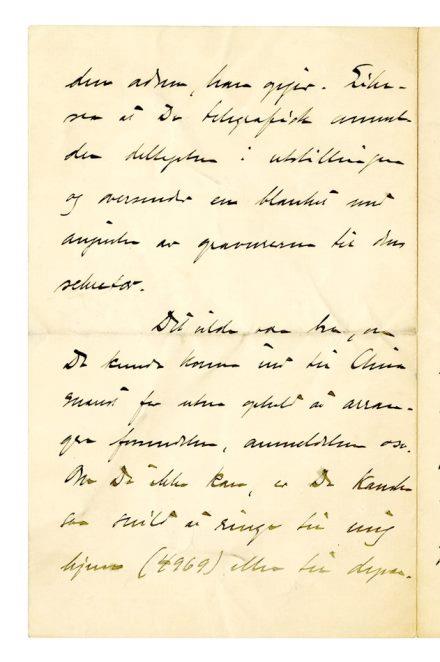 den adresse, han opgir. Like-
saa at De telegrafisk anmelder
den deltagelse i utstillingen
og oversender en blanket med
angivelse av gravurerne til dens
sekretær.
Det vilde være bra, om
De kunde komme ind til Chria
snarest for uten ophold at arran-
gere forsendelse, anmeldelse osv.
Om De ikke kan, er De kanske
saa snild at ringe til mig
hjem (4969) eller til depar-